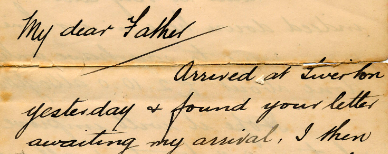 My dear Father
Arrived at Tiverton
yesterday & found your letter
awaiting my arrival. I then